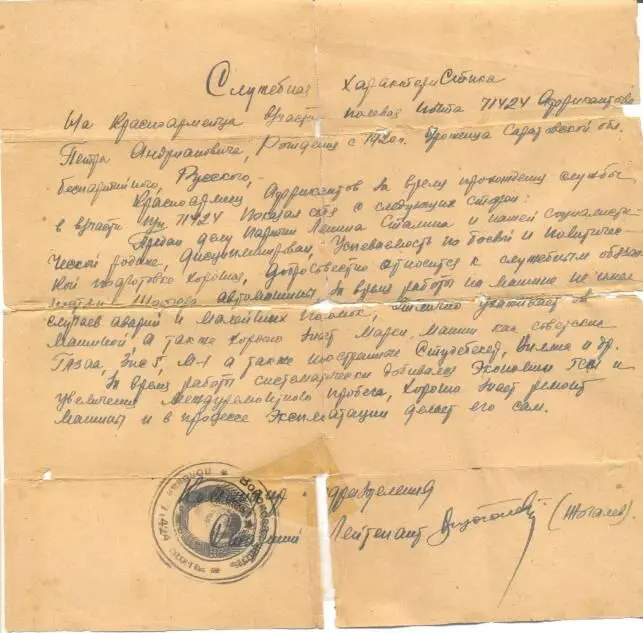 Служебная характеристика
На красноармейца в/части полевая почта 71424 Африкантова
Петра Андриановича, рождения с 1920 г. Уроженца Саратовской обл.
беспартийного, Русского,
Красноармеец Африкантов за время прохождения службы
в в/части п/п 71424 показал себя с следующих сторон:
Предан делу партии Ленина Сталина и нашей социалисти-
ческой родине, Дисциплинирован, Успеваемость по боевой и политичес-
кой подготовке хорошая, Добросовестно относится к служебным обязан-
ностям автомашины За время работы на машине не имел
случаев аварий и малейших поломок, Отлично ухаживает за
машиной а также хорошо знает марки машин как советские
ГАЗаа, Зис 5, М-1 а также иностранные Студебекер, Виллис и др.
За время работы систематически добивался Экономии ГСМ и
увеличения Междуремонтного пробега, Хорошо знает ремонт
машины и в процессе Эксплуатации делает его сам.
Командир подразделения
Лейтенант (Жогалев).
71424